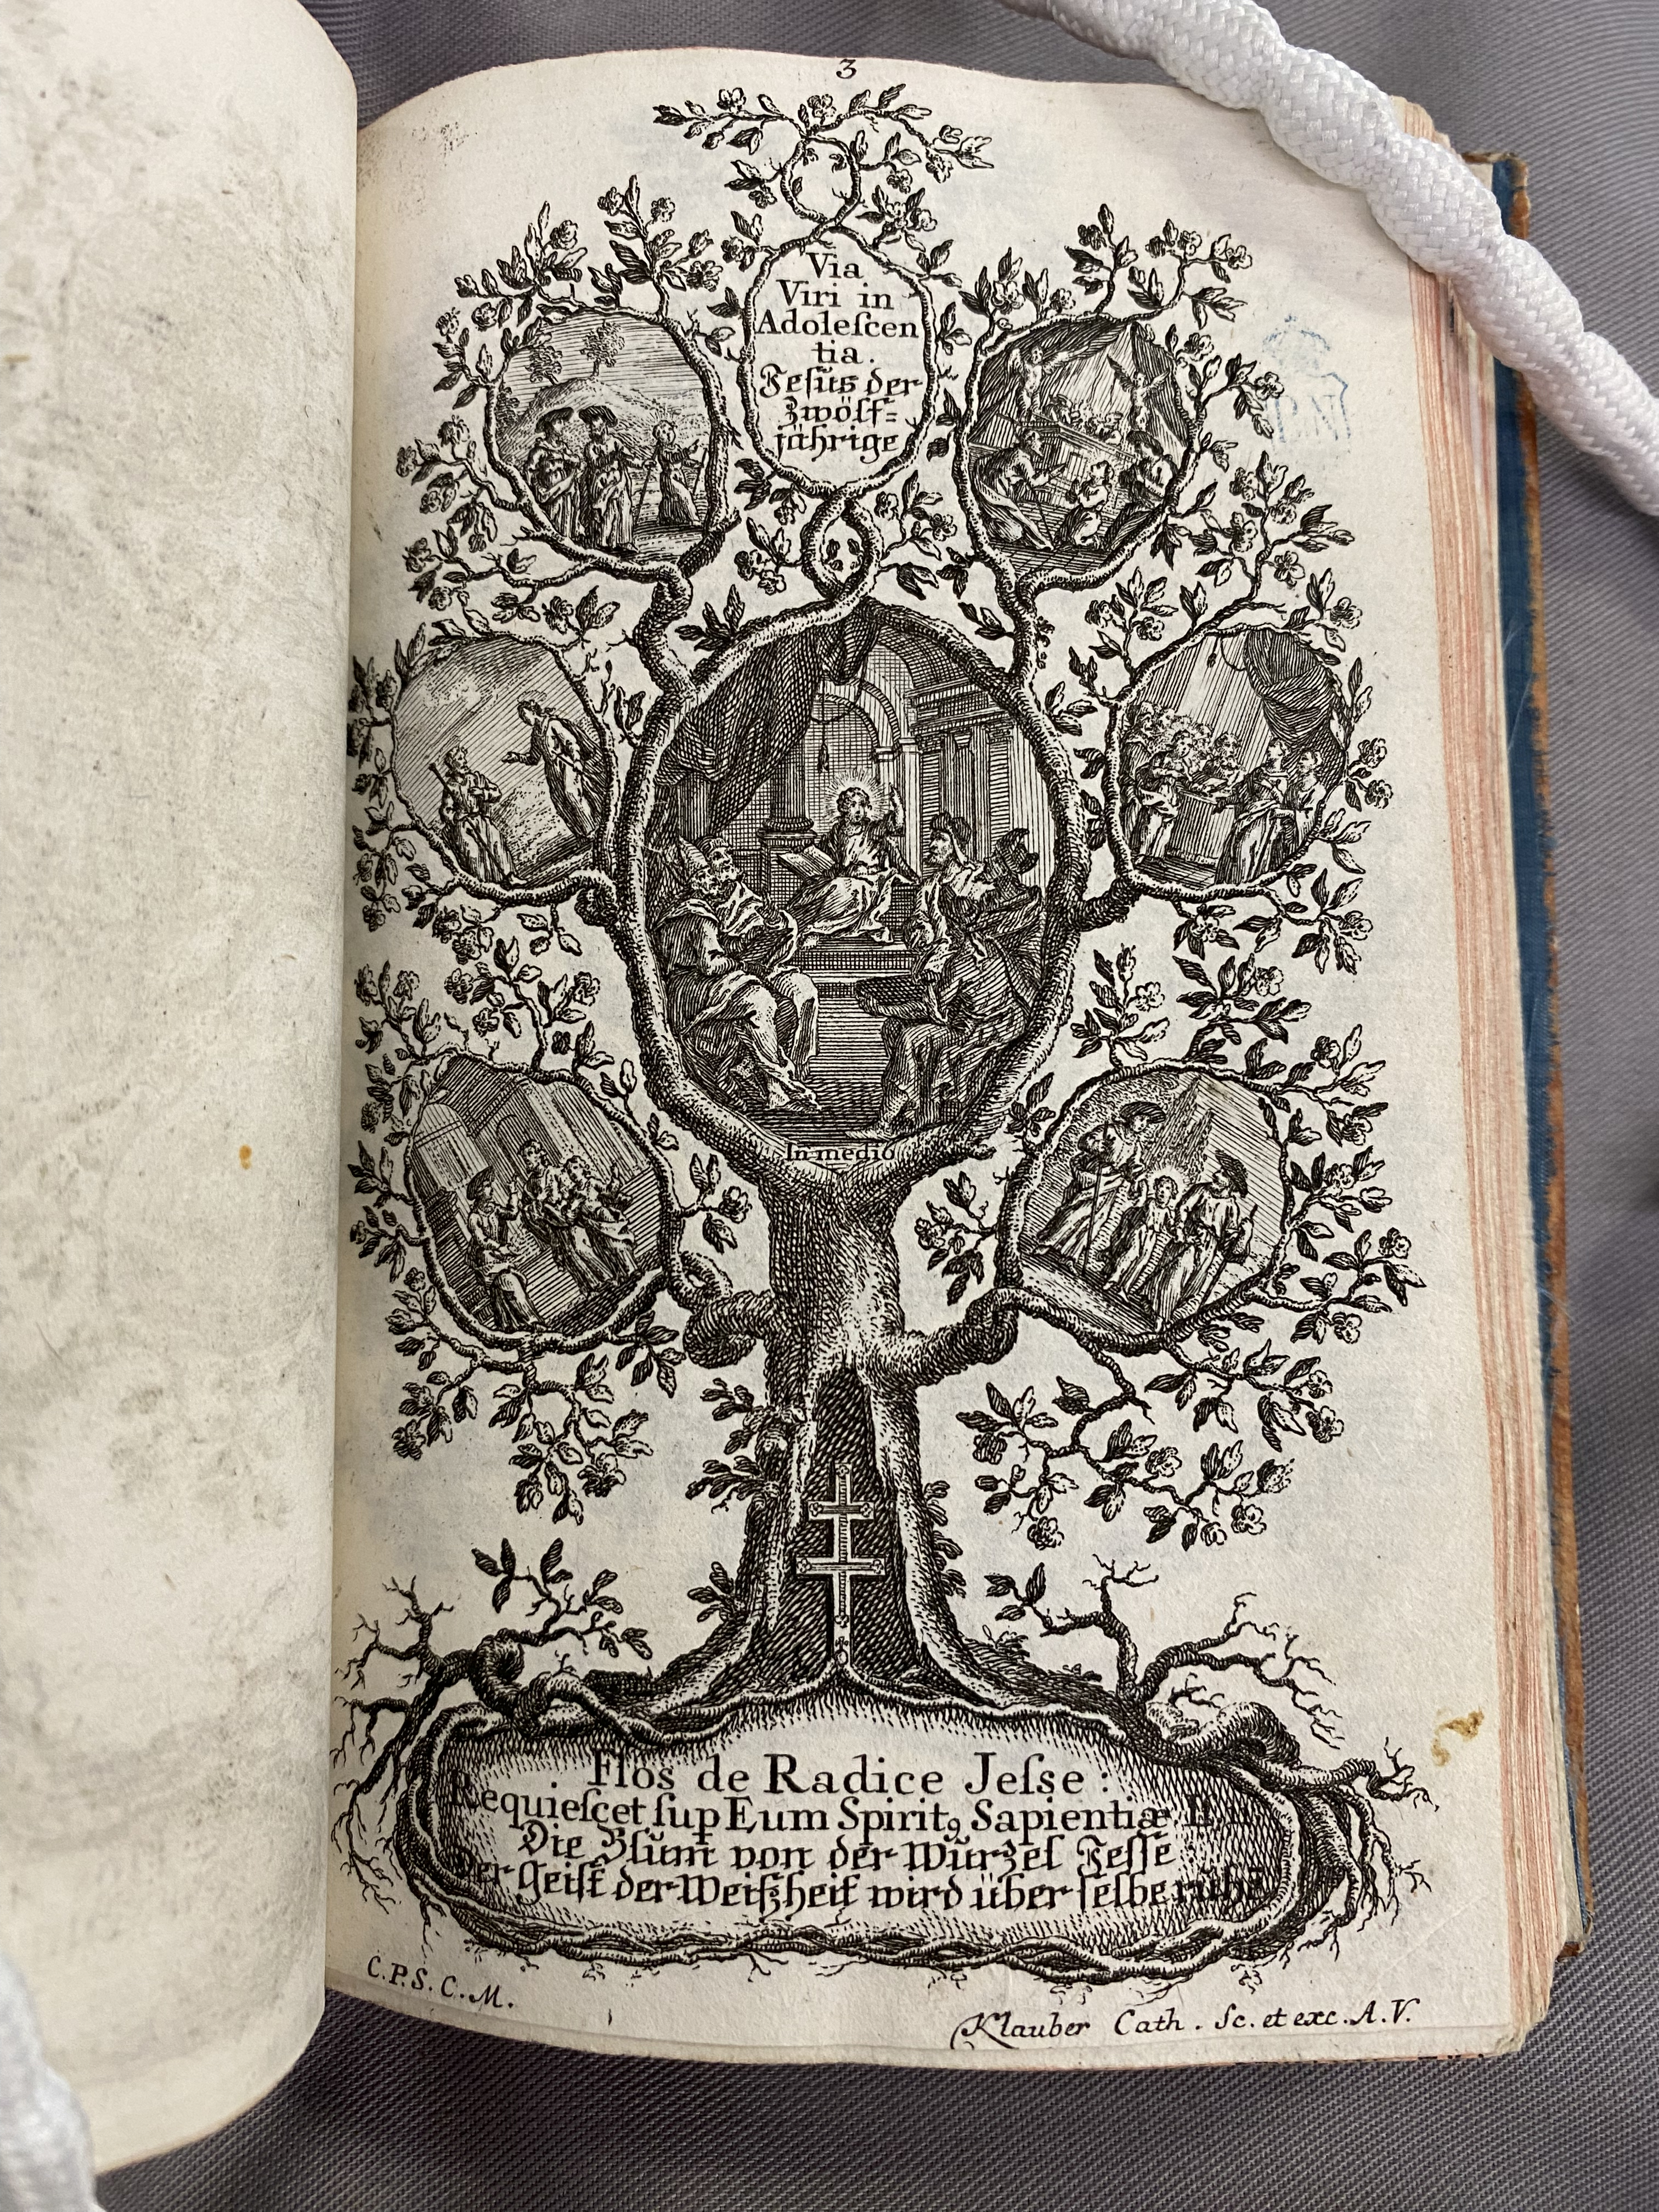 3
Via
Viri in
Adoleſcen
tia.
Jeſus der
Zwölf=
jährige
In medio
Flos de Radice Jeſse:
Requieſcet ſup Eum Spiritꝰ Sapientiæ
Die Blům von der Würzel Jeſſe
der Geiſt der Weiſzheit wird über ſelbe
C.P.S.C.M.
Klauber Cath. Sc. et exc. A.V.